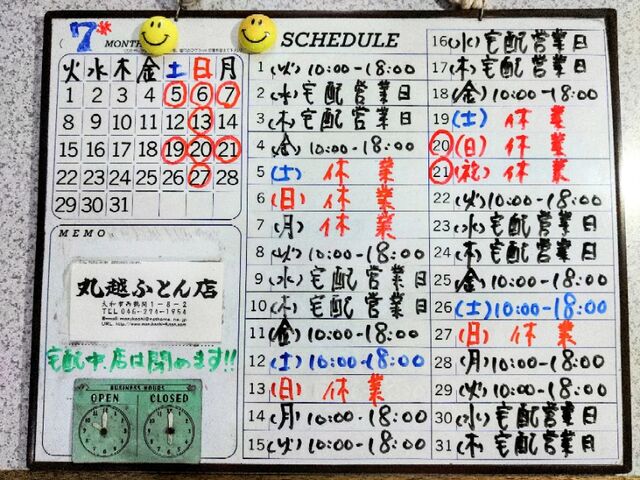 7月
MONTH
火 水 木 金 土 日 月
1 2 3 4 5 6 7
8 9 10 11 12 13 14
15 16 17 18 19 20 21
22 23 24 25 26 27 28
29 30 31
MEMO
丸越ふとん店
大和市西鶴間1-8-2
TEL 046-274-1954
宅配中店は閉めます!!
BUSINESS HOURS
OPEN CLOSED
SCHEDULE
1 (火) 10:00-18:00
2 (水) 宅配営業日
3 (木) 宅配営業日
4 (金) 10:00-18:00
5 (土) 休業
6 (日) 休業
7 (月) 休業
8 (火) 10:00-18:00
9 (水) 宅配営業日
10 (木) 宅配営業日
11 (金) 10:00-18:00
12 (土) 10:00-18:00
13 (日) 休業
14 (月) 10:00-18:00
15 (火) 10:00-18:00
16 (水) 宅配営業日
17 (木) 宅配営業日
18 (金) 10:00-18:00
19 (土) 休業
20 (日) 休業
21 (祝) 休業
22 (火) 10:00-18:00
23 (水) 宅配営業日
24 (木) 宅配営業日
25 (金) 10:00-18:00
26 (土) 10:00-18:00
27 (日) 休業
28 (月) 10:00-18:00
29 (火) 10:00-18:00
30 (水) 宅配営業日
31 (木) 宅配営業日